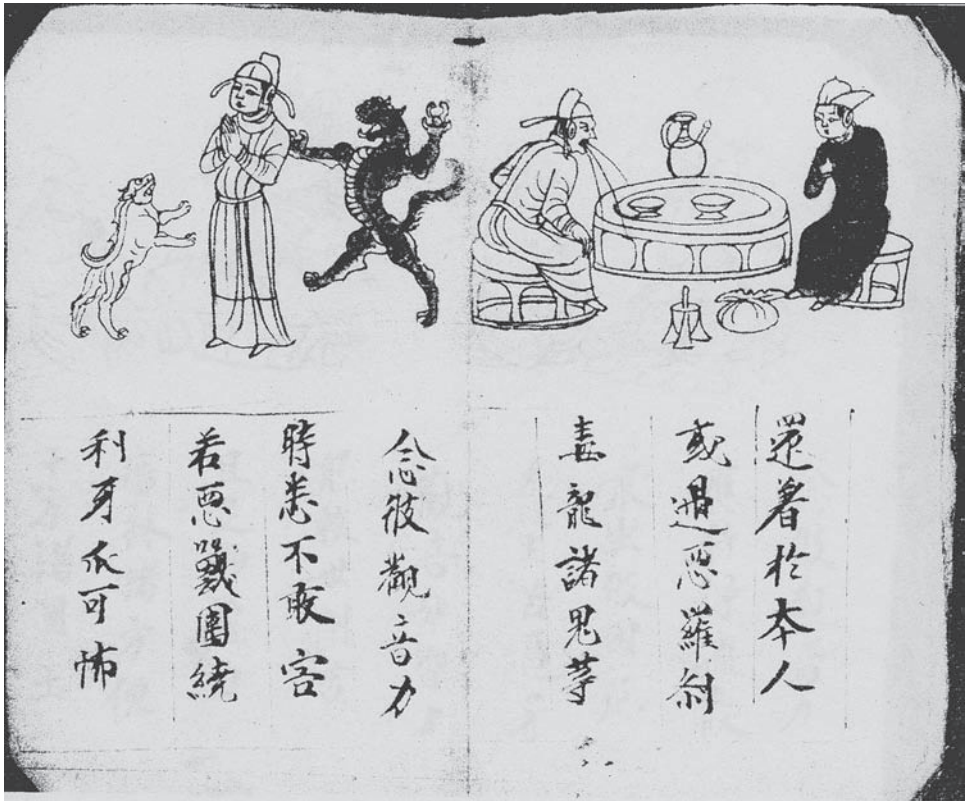 還著於本人
或遇惡羅剎
毒龍諸鬼等
念彼觀音力
時悉不敢害
若惡獸圍繞
利牙爪可怖